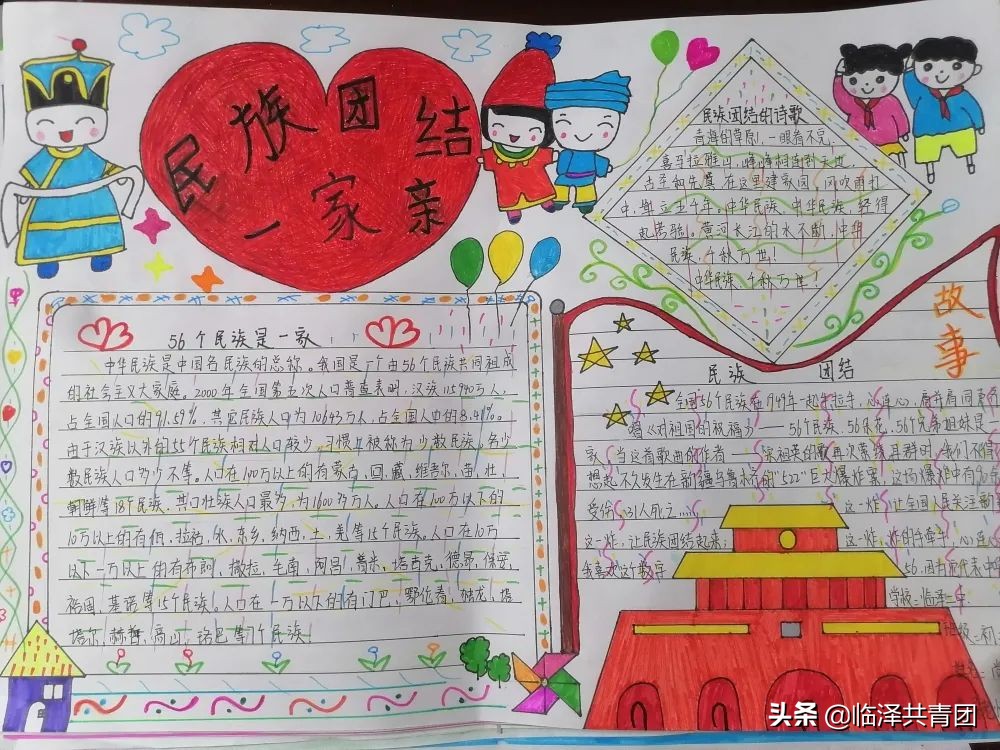 民族团结
一家亲
民族团结的诗歌
青海的草原,一眼看不完,
喜马拉雅山,峰峰相连到天边,
古圣和先贤,在这里建家园,风吹雨打
中,耸立五千年,中华民族,中华民族,经得
起考验。黄河长江的水不断,中华
民族,千秋万世!
中华民族,千秋万世!
56个民族是一家
中华民族是中国各民族的总称。我国是一个由56个民族共同组成
的社会主义大家庭。2000年全国第五次人口普查表明,汉族115940万人,
占全国人口的91.59%。其它民族人口为10643万人,占全国人口的8.41%。
由于汉族以外的55个民族相对人口较少,习惯上被称为少数民族。各少
数民族人口多少不等。人口在100万以上的有蒙古,回,藏,维吾尔,苗,壮,
朝鲜等18个民族,其中壮族人口最多,为1600多万人。人口在100万以下的
10万以上的有佤,拉祜,水,东乡,纳西,土,羌等15个民族。人口在10万
以下一万以上的有布朗,撒拉,毛南,阿昌,普米,塔吉克,德昂,保安,
裕固,基诺等15个民族。人口在一万以下的有门巴,鄂伦春,独龙,塔
塔尔,赫哲,高山,珞巴等7个民族
故事
民族 团结
全国56个民族在1949年一起牵拉手,心连心,肩并肩同
唱《对祖国的祝福》——56个民族,56朵花,56个兄弟姐妹是一
家,当这首歌曲的作者——宋祖英的歌再次萦绕耳群时,我们不得
想起不久发生在新疆乌鲁木齐的"522"巨大爆炸案,这场爆炸中有90
受伤,31人死亡…… 这一炸,让全国人民关注新
这一炸,让民族团结起来; 这一炸,炸的手牵手,心连
我喜欢这个数字 56,因为而代表中
学校:临泽
班级:初
头条 @临泽共青团